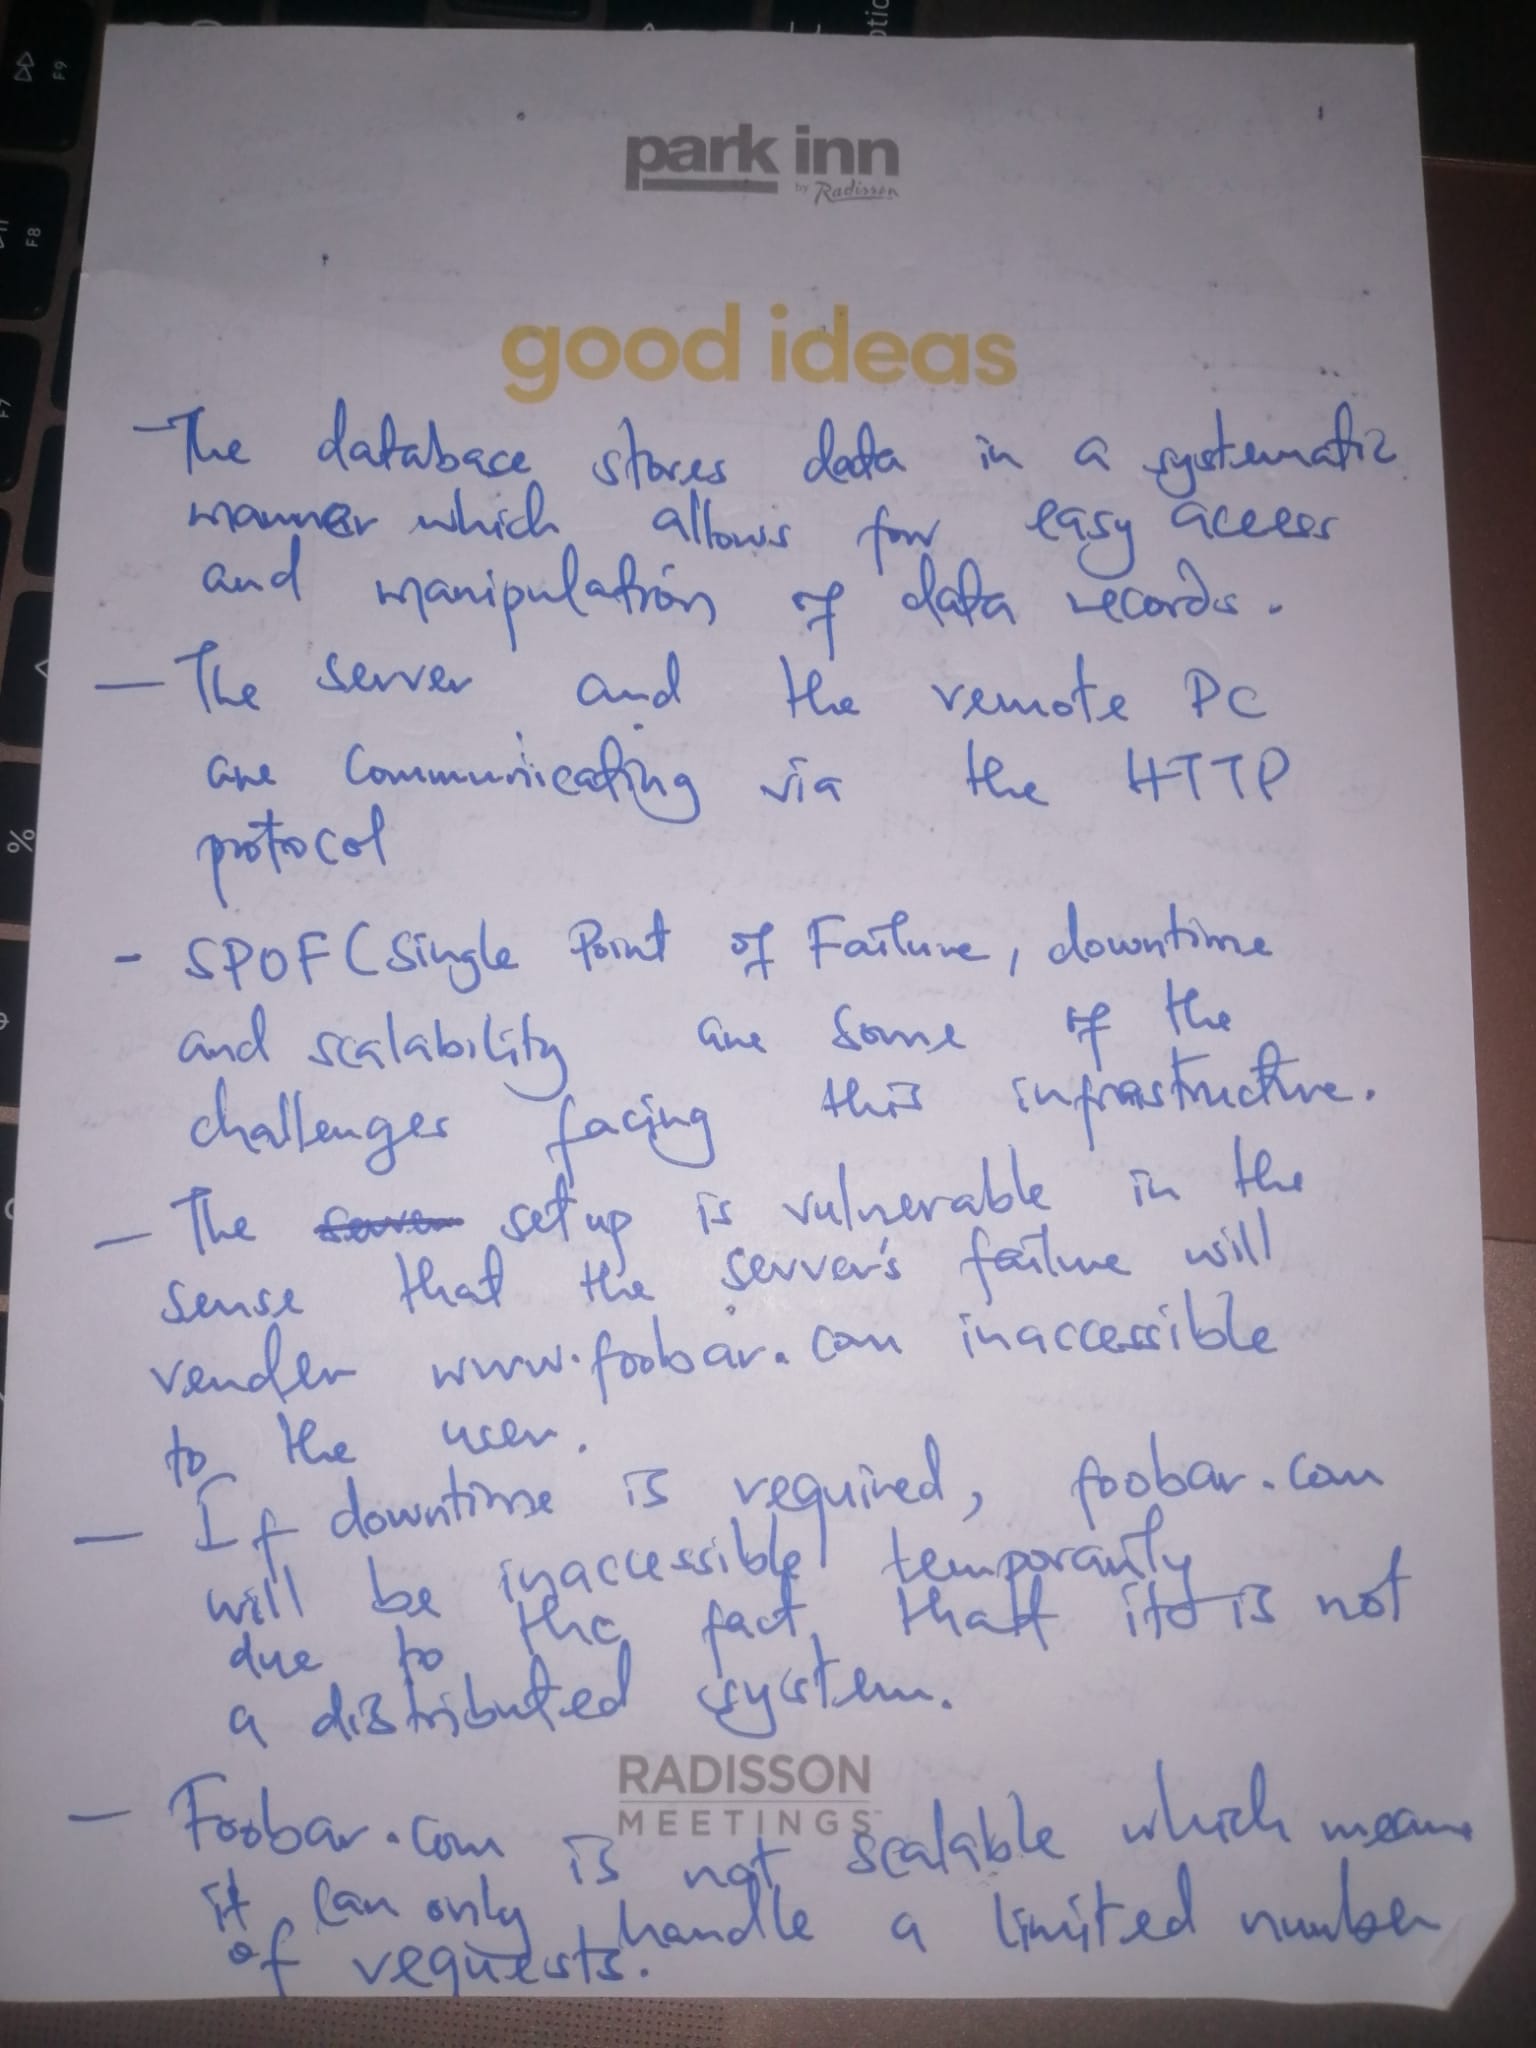 park inn
by Radisson
good ideas
- The database stores data in a systematic
manner which allows for easy access
and manipulation of data records.
- The server and the remote PC
are communicating via the HTTP
protocol
- SPOF (Single Point of Failure, downtime
and scalability are some of the
challenges facing this infrastructure.
- The server set up is vulnerable in the
sense that the server's failure will
render www.foobar.com inaccessible
to the user.
- If downtime is required, foobar.com
will be inaccessible temporarily
due to the fact that it is not
a distributed system.
RADISSON
MEETINGS
- Foobar.com is not scalable which means
it can only handle a limited number
of requests.
F9
F8
F7
%